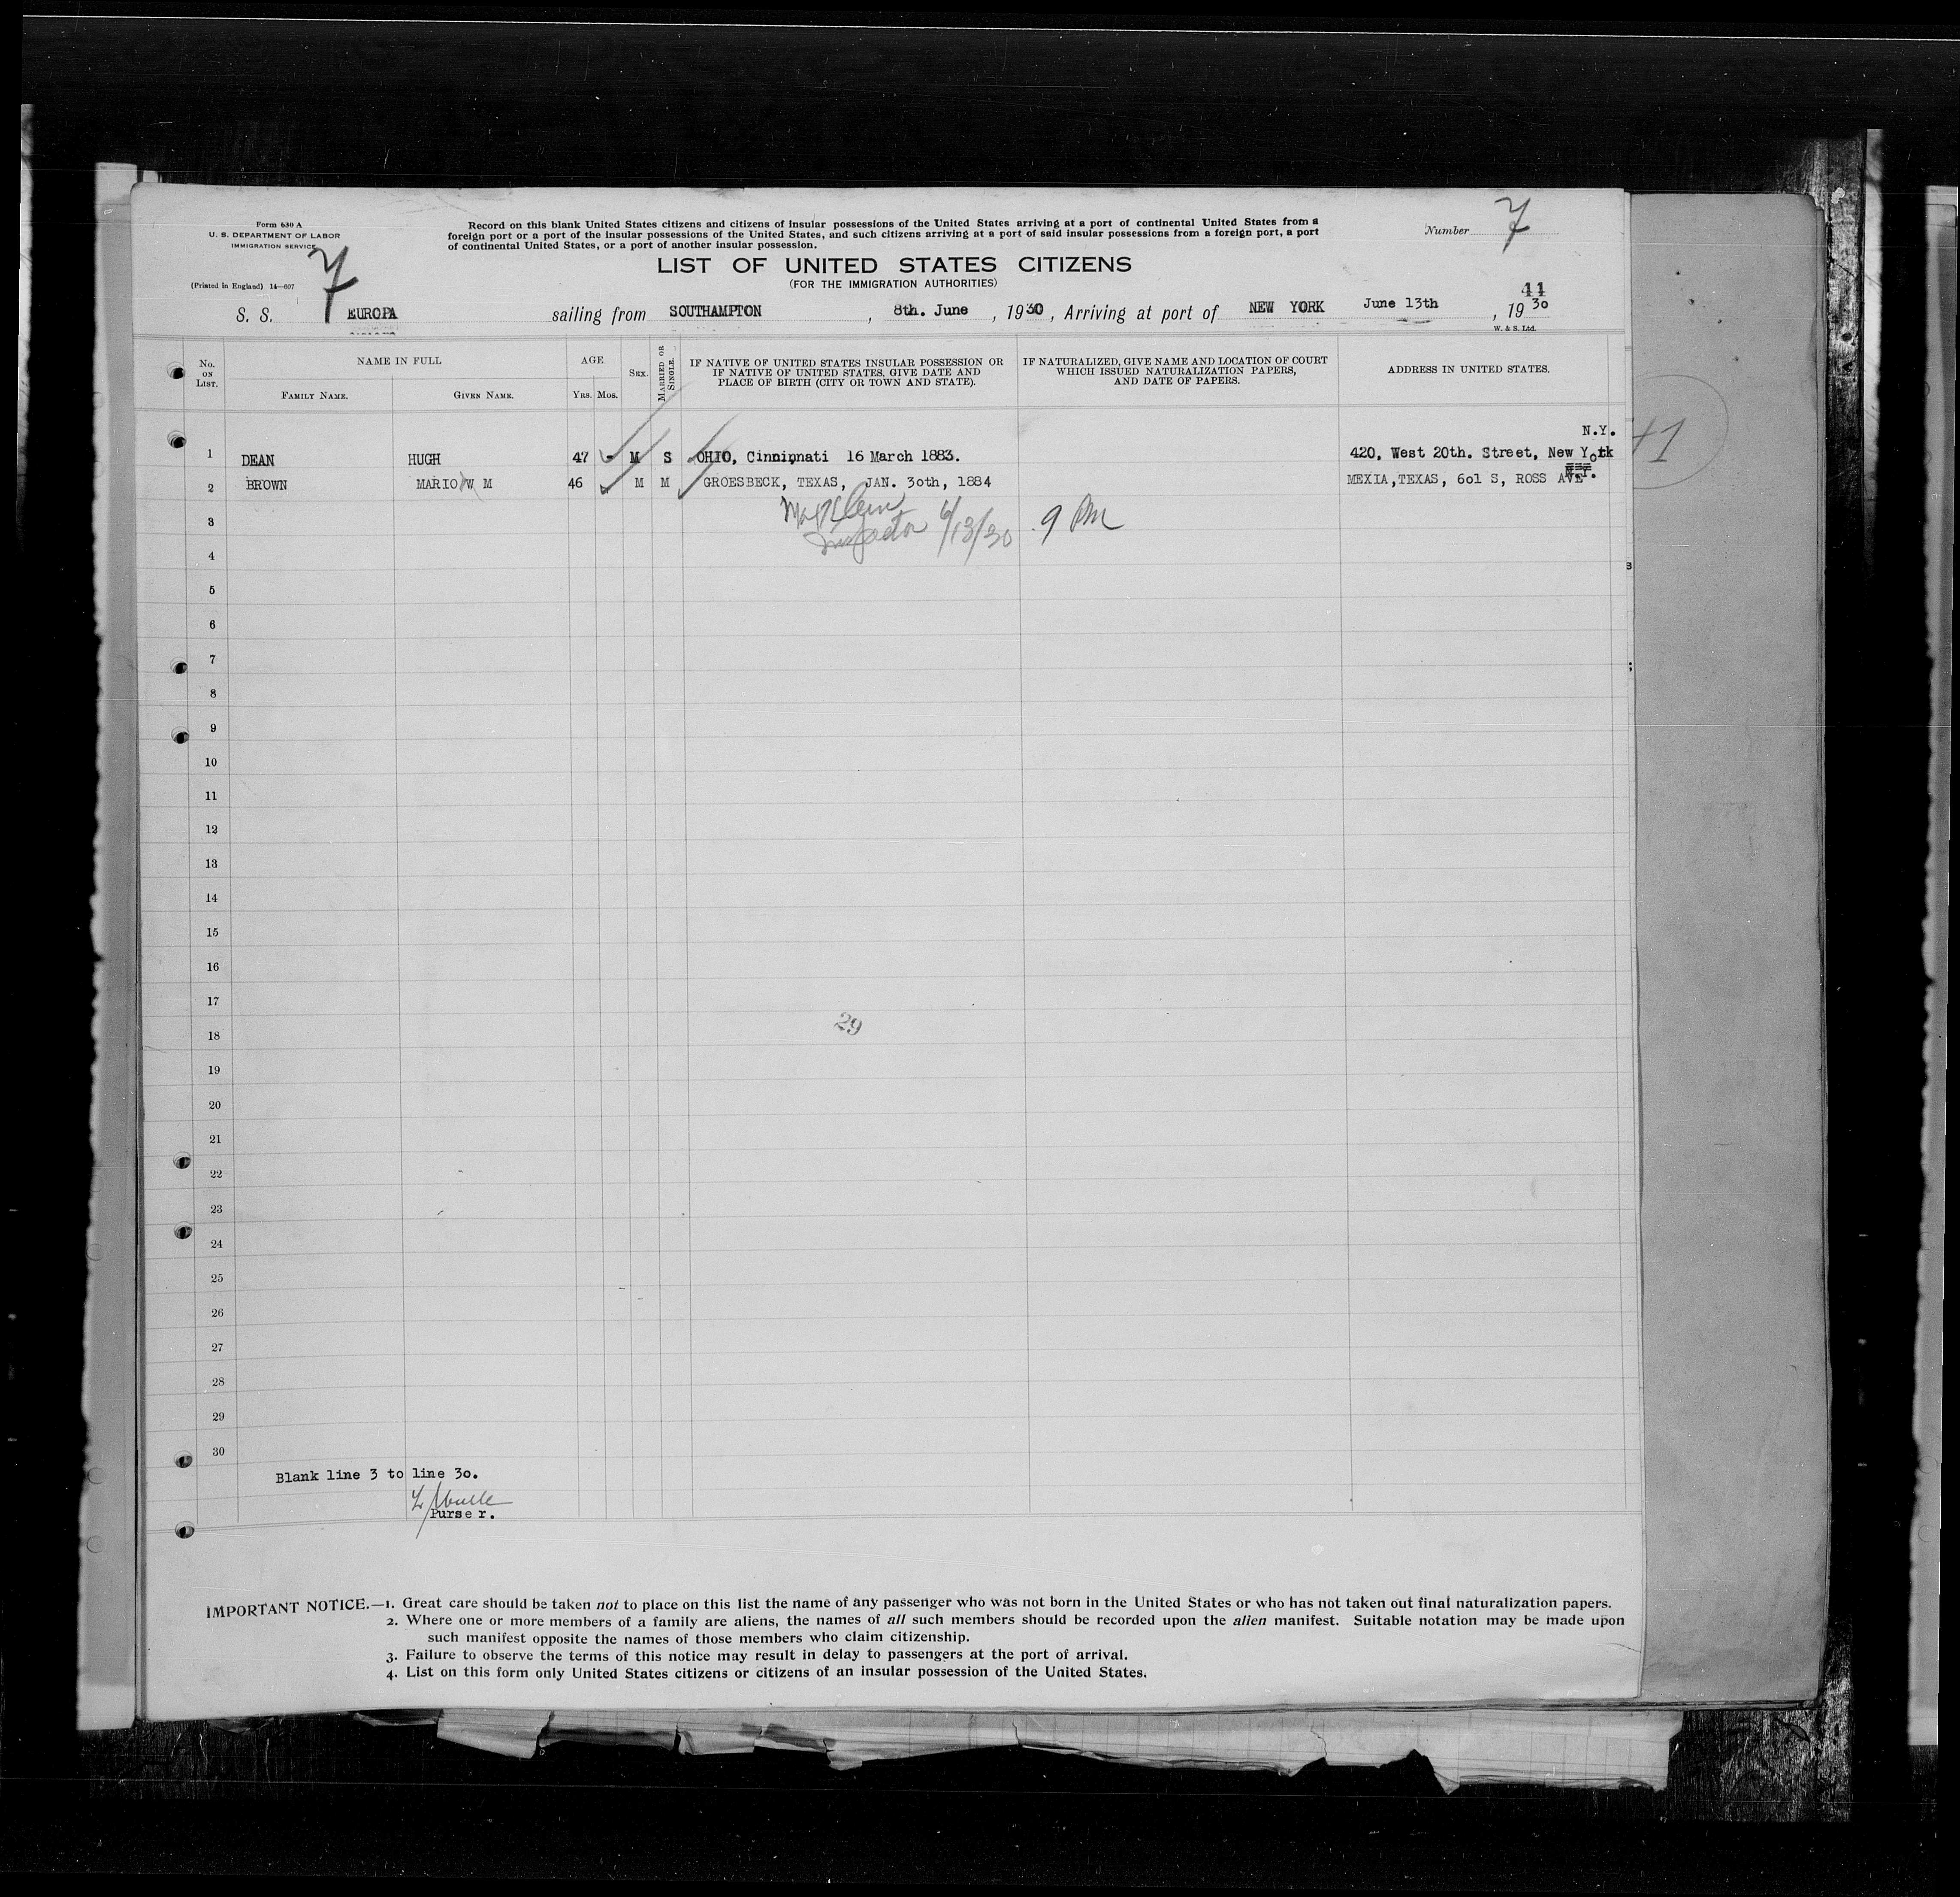 Form 630 A
U. S. DEPARTMENT OF LABOR
IMMIGRATION SERVICE
(Printed in England) 14—607
7
Record on this blank United States citizens and citizens of insular possessions of the United States arriving at a port of continental United States from a
foreign port or a port of the insular possessions of the United States, and such citizens arriving at a port of said insular possessions from a foreign port, a port
of continental United States, or a port of another insular possession.
Number 7
LIST OF UNITED STATES CITIZENS
(FOR THE IMMIGRATION AUTHORITIES)
11
S. S. EUROPA sailing from SOUTHAMPTON, 8th. June, 1930, Arriving at port of NEW YORK June 13th, 1930
W. & S. Ltd.
No. ON LIST.
NAME IN FULL
FAMILY NAME.
GIVEN NAME.
AGE
YRS. MOS.
SEX.
MARRIED OR SINGLE.
IF NATIVE OF UNITED STATES INSULAR POSSESSION OR
IF NATIVE OF UNITED STATES, GIVE DATE AND
PLACE OF BIRTH (CITY OR TOWN AND STATE).
IF NATURALIZED, GIVE NAME AND LOCATION OF COURT
WHICH ISSUED NATURALIZATION PAPERS,
AND DATE OF PAPERS.
ADDRESS IN UNITED STATES.
N.Y.
1 DEAN HUGH 47 - M S OHIO, Cinninnati 16 March 1883. 420, West 20th. Street, New York
2 BROWN MARIO W M 46 M M GROESBECK, TEXAS, JAN. 30th, 1884 MEXIA, TEXAS, 601 S, ROSS AVE.
3
Inspector 6/13/30 9 PM
4
5
6
7
8
9
10
11
12
13
14
15
16
17
29
18
19
20
21
22
23
24
25
26
27
28
29
30
Blank line 3 to line 30.
Purser.
41
IMPORTANT NOTICE.—1. Great care should be taken not to place on this list the name of any passenger who was not born in the United States or who has not taken out final naturalization papers.
2. Where one or more members of a family are aliens, the names of all such members should be recorded upon the alien manifest. Suitable notation may be made upon
such manifest opposite the names of those members who claim citizenship.
3. Failure to observe the terms of this notice may result in delay to passengers at the port of arrival.
4. List on this form only United States citizens or citizens of an insular possession of the United States.